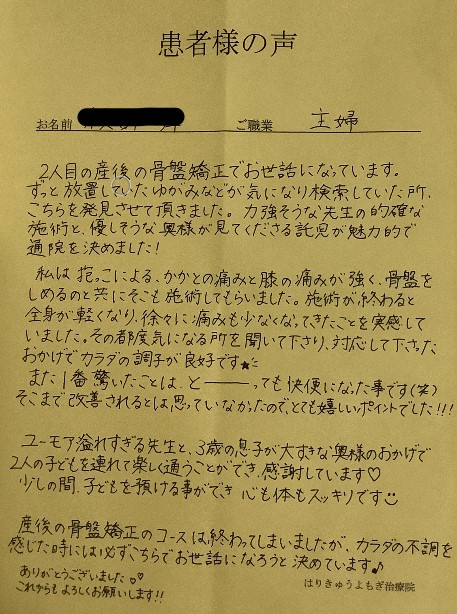 患者様の声
お名前 ご職業 主婦
2人目の産後の骨盤矯正でお世話になっています。
ずっと放置していたゆがみなどが気になり検索していた所、
こちらを発見させて頂きました。力強そうな先生の的確な
施術と、優しそうな奥様が見てくださる託児が魅力的で
通院を決めました!
私は抱っこによる、かかとの痛みと膝の痛みが強く、骨盤を
しめるのと共にそこも施術してもらいました。施術が終わると
全身が軽くなり、徐々に痛みも少なくなってきたことを実感して
いました。その都度気になる所を聞いて下さり、対応して下さった
おかげでカラダの調子が良好です★
また1番驚いたことは、と―――っても快便になった事です(笑)
そこまで改善されるとは思っていなかったので、とても嬉しいポイントでした!!!
ユーモア溢れすぎる先生と、3歳の息子が大すきな奥様のおかげで
2人の子どもを連れて楽しく通うことができ、感謝しています♡
少しの間、子どもを預ける事ができ 心も体もスッキリです☺
産後の骨盤矯正のコースは終わってしまいましたが、カラダの不調を
感じた時には必ずこちらでお世話になろうと決めています♪
ありがとうございました♡♡
これからもよろしくお願いします!!
はりきゅうよもぎ治療院